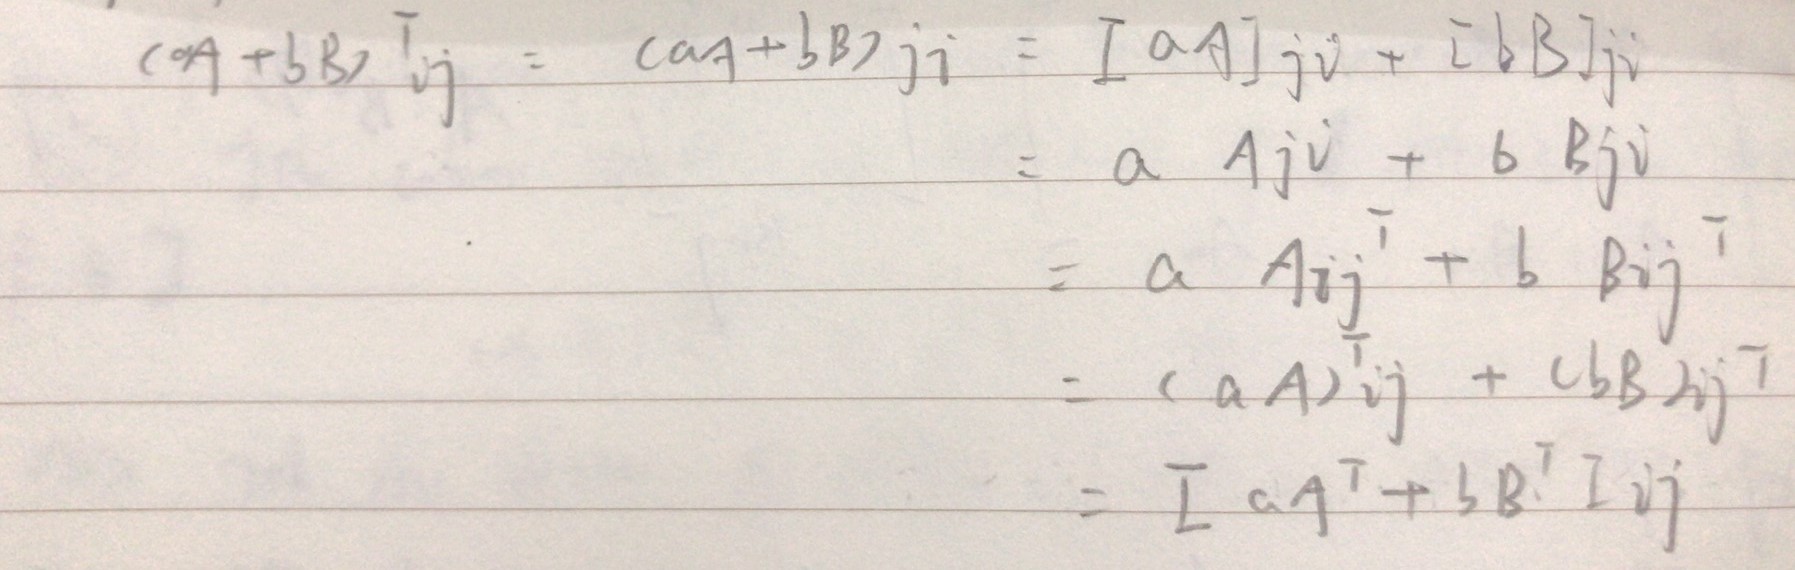 (aA + bB)ᵀij = (aA + bB)ji = [aA]ji + [bB]ji
= a Aji + b Bji
= a Aijᵀ + b Bijᵀ
= (aA)ᵀij + (bB)ijᵀ
= [aAᵀ + bBᵀ]ij